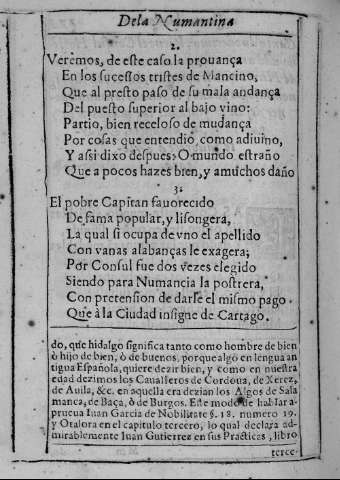 Dela Numantina
2.
Veremos, de este caso la prouança
En los sucessos tristes de Mancino,
Que al presto paso de su mala andança
Del puesto superior al bajo vino:
Partio, bien receloso de mudança
Por cosas que entendió como adiuino,
Y assi dixo despues: O mundo estraño
Que a pocos hazes bien, y a muchos daño
3.
El pobre Capitan fauorecido
De fama popular, y lisongera,
La qual si ocupa de vno el apellido
Con vanas alabanças le exagera;
Por Consul fue dos vezes elegido
Siendo para Numancia la postrera,
Con pretension de darle el mismo pago
Que à la Ciudad insigne de Cartago.
do, que hidalgo significa tanto como hombre de bien
ò hijo de bien, ò de buenos, porque algo en lengua an
tigua Española, quiere dezir bien, y como en nuestra
edad dezimos los Caualleros de Cordoua, de Xerez,
de Auila, &c. en aquella era dezian los Algos de Sala
manca, de Baça, ò de Burgos. Este modo de hablar a-
prueua Iuan Garcia de Nobilitate §. 18. numero 19.
y Otalora en el capitulo tercero, lo qual declara ad-
mirablemente Iuan Gutierrez en sus Practicas, libro
terce-